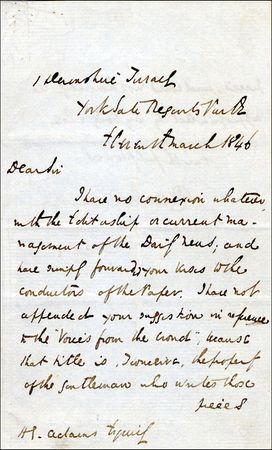 1 Devonshire Terrace
York Gate Regents Park
Eleventh March 1846
Dear Sir
I have no connexion whatever
with the Editorship or current ma-
nagement of the Daily News, and
have simply forwarded your verses to the
conductors of the Paper. I have not
appended your suggestion in reference
to the "Voices from the Crowd", because
that title is, I conceive, the property
of the gentleman who writes those
pieces
H. G. Adams Esquire